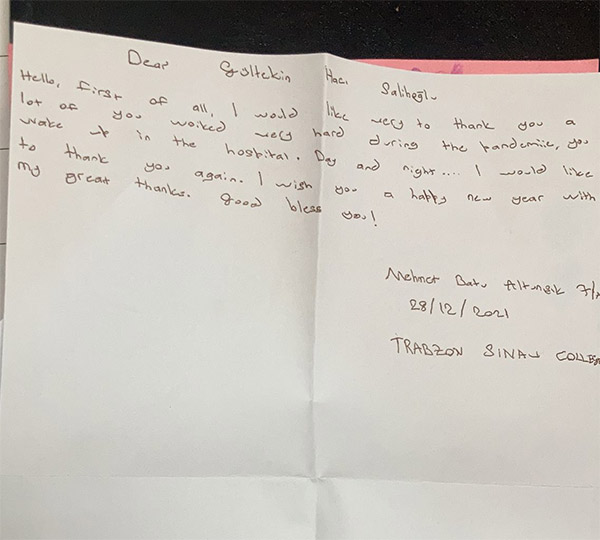 Dear Gültekin Hacı Salihoğlu
Hello, first of all, I would like very to thank you a
lot of you worked very hard during the pandemiie, you
wake up in the hospital. Day and night.... I would like
to thank you again. I wish you a happy new year with
my great thanks. good bless you!
Mehmet Batu Altunışık 7/A
28/12/2021
TRABZON SINAV COLLEGE